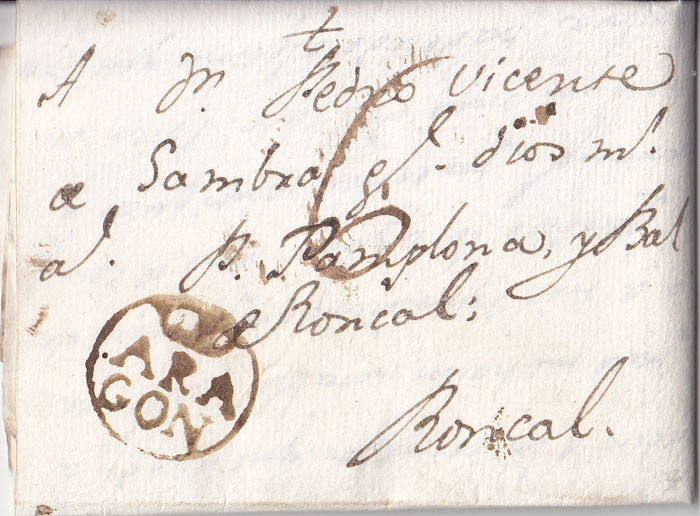 †
A Dn. Pedro Vicente
de Sambra gе. dios ms.
as. P. Pamplona, y Bal
de Roncal;
Roncal.
6
ARA
GON